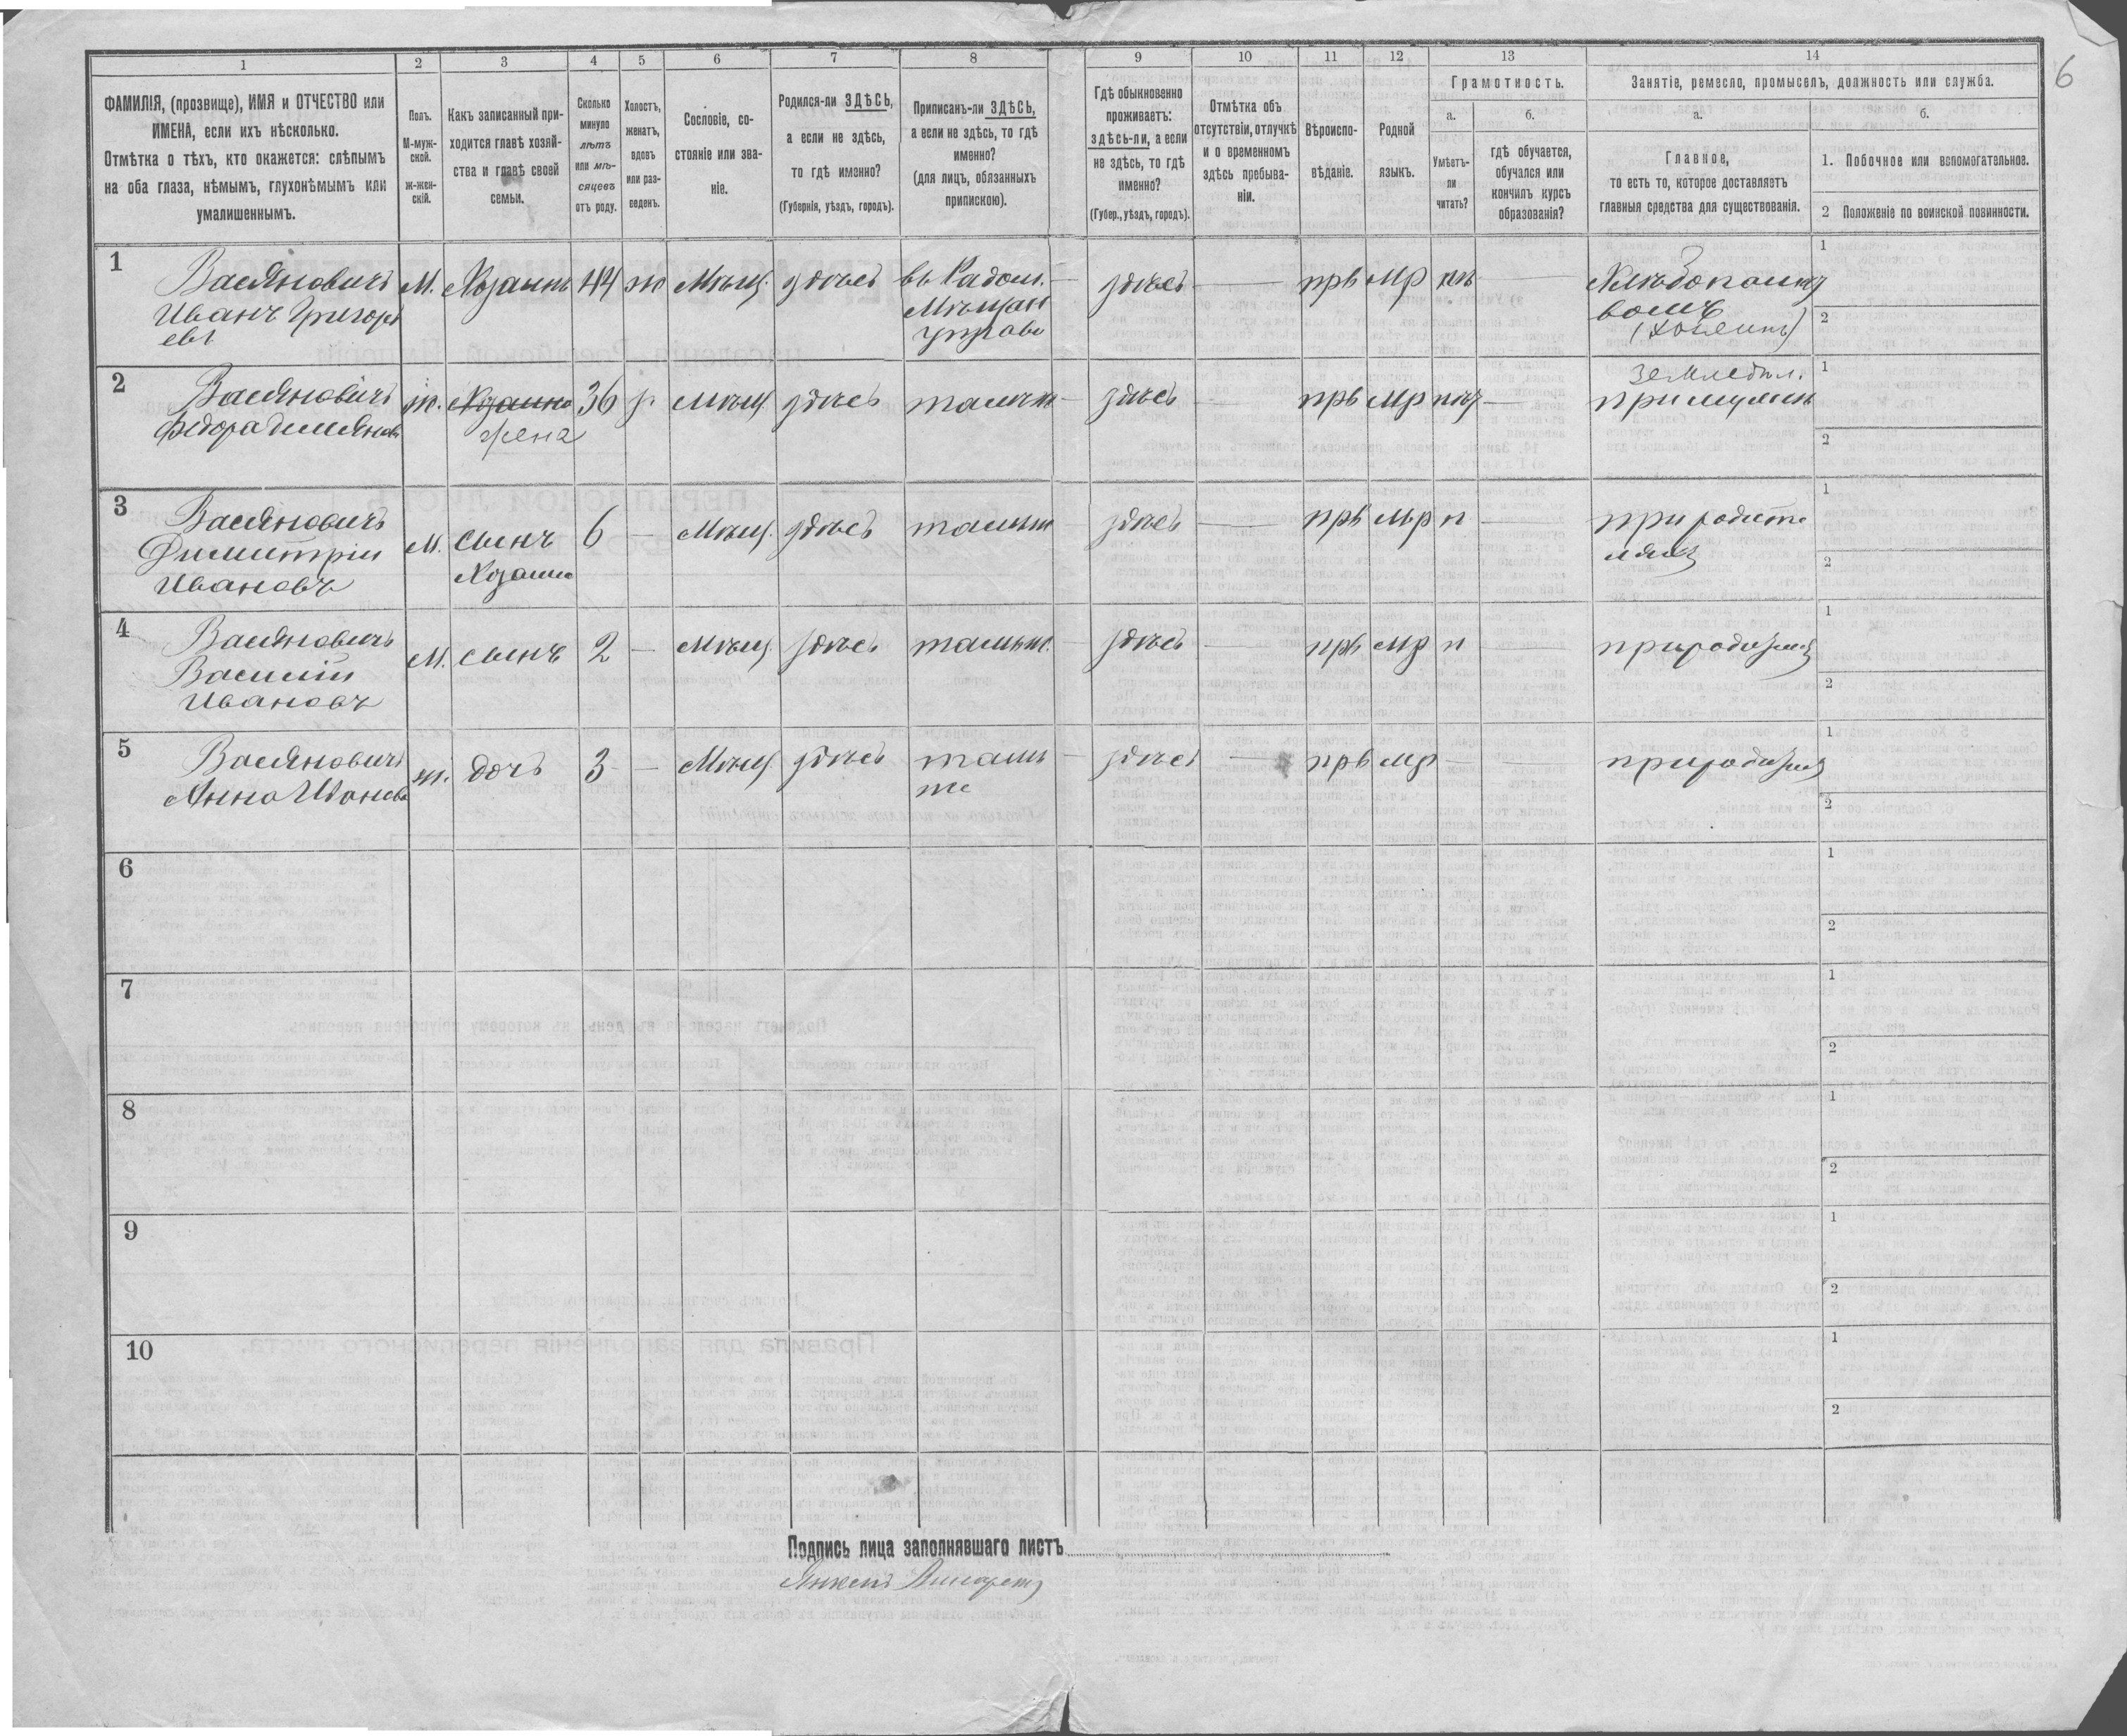 6
1 2 3 4 5 6 7 8 9 10 11 12 13 14
ФАМИЛІЯ, (прозвище), ИМЯ и ОТЧЕСТВО или
ИМЕНА, если ихъ нѣсколько.
Отмѣтка о тѣхъ, кто окажется: слѣпымъ
на оба глаза, нѣмымъ, глухонѣмымъ или
умалишеннымъ.
Полъ.
М-муж-
ской.
Ж-жен-
скій.
Какъ записанный при-
ходится главѣ хозяй-
ства и главѣ своей
семьи.
Сколько
минуло
лѣтъ
или мѣ-
сяцевъ
отъ роду.
Холостъ,
женатъ,
вдовъ
или раз-
веденъ.
Сословіе, со-
стояніе или зва-
ніе.
Родился-ли ЗДѢСЬ,
а если не здѣсь,
то гдѣ именно?
(Губернія, уѣздъ, городъ).
Приписанъ-ли ЗДѢСЬ,
а если не здѣсь, то гдѣ
именно?
(для лицъ, обязанныхъ
припискою).
Гдѣ обыкновенно
проживаетъ:
здѣсь-ли, а если
не здѣсь, то гдѣ
именно?
(Губер., уѣздъ, городъ).
Отмѣтка объ
отсутствіи, отлучкѣ
и о временномъ
здѣсь пребыва-
ніи.
Вѣроиспо-
вѣданіе.
Родной
языкъ.
Грамотность.
а.
Умѣетъ-
ли
читать?
б.
гдѣ обучается,
обучался или
кончилъ курсъ
образованія?
Занятіе, ремесло, промыселъ, должность или служба.
а.
Главное,
то есть то, которое доставляетъ
главныя средства для существованія.
б.
1. Побочное или вспомогательное.
2 Положеніе по воинской повинности.
1 Васяновичъ М. Хозаинъ 44 ж Мѣщ. здѣсь въ Радом. — здѣсь — прв мр — 1
Иванъ Григорь Мѣщан
евъ управѣ 2
(хозяинъ)
земледѣл.
2 Васяновичъ ж. Хозаина 36 з. Мѣщ здѣсь — здѣсь — прв мр — при мужѣ 1
Федора
жена 2
3 Васяновичъ М. сынъ 6 — Мѣщ. здѣсь тамже здѣсь — прв мр п — при родите 1
Димитріи ляхъ
Ивановъ Хозаина 2
4 Васяновичъ М. сынъ 2 — Мѣщ. здѣсь тамже. — здѣсь — прв мр п — 1
Василій
Ивановъ 2
5 Васяновичъ ж. дочъ 3 — Мѣщ. здѣсь там — здѣсь — прв мр — — 1
Анна Иванова же 2
6 1
2
7 1
2
8 1
2
9 1
2
10 1
2
Подпись лица заполнявшаго листъ